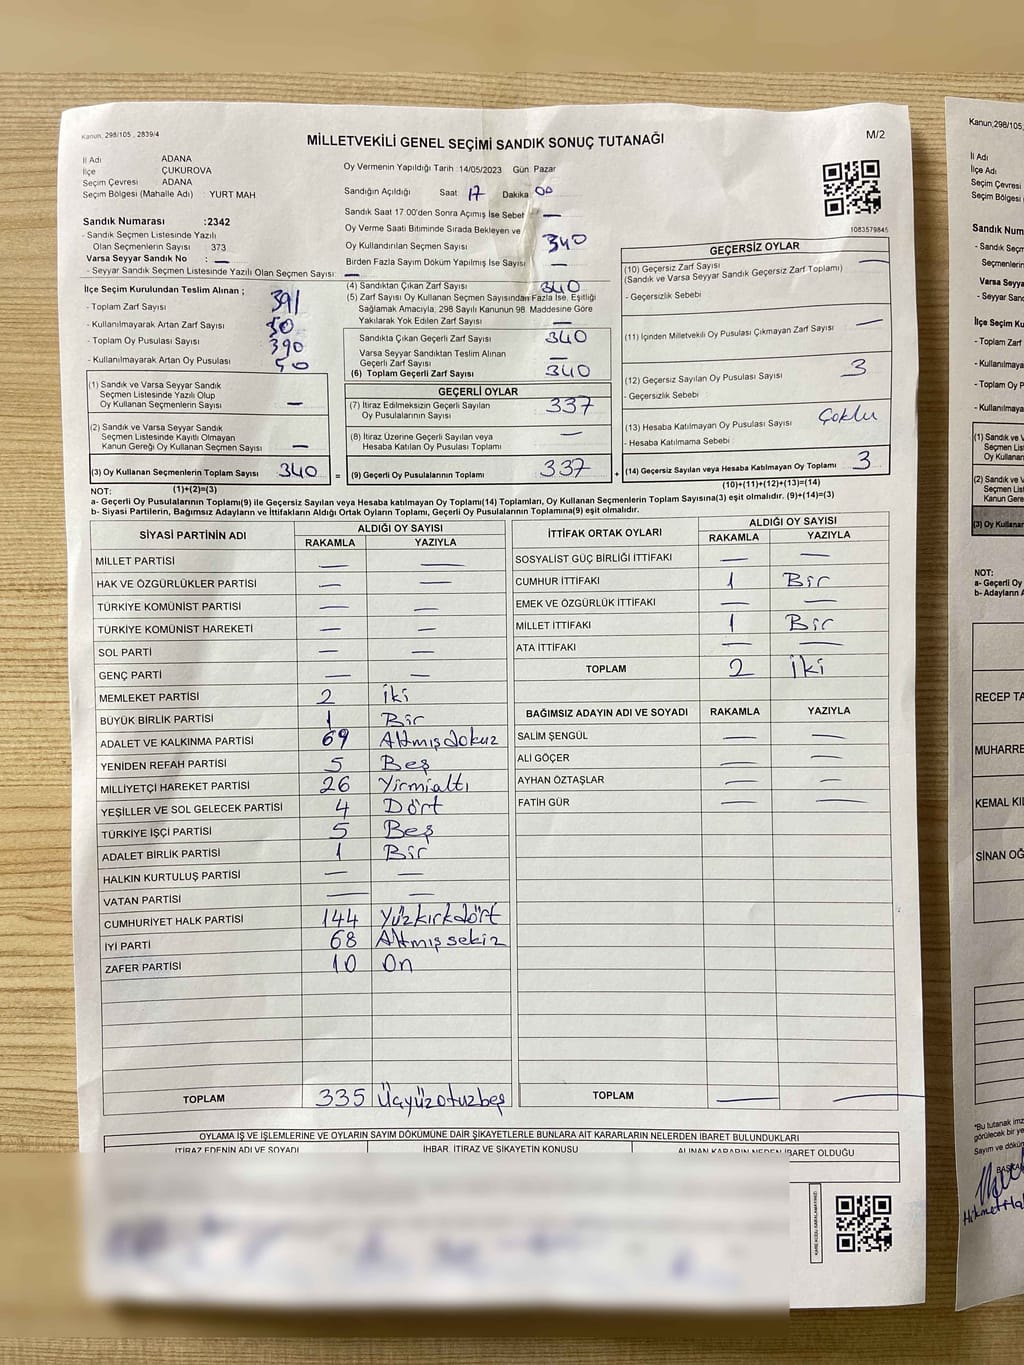 Kanun, 298/105 , 2839/4
MİLLETVEKİLİ GENEL SEÇİMİ SANDIK SONUÇ TUTANAĞI
M/2
İl Adı ADANA
İlçe ÇUKUROVA
Seçim Çevresi ADANA
Seçim Bölgesi (Mahalle Adı) YURT MAH
Sandık Numarası :2342
- Sandık Seçmen Listesinde Yazılı
Olan Seçmenlerin Sayısı : 373
Varsa Seyyar Sandık No : —
- Seyyar Sandık Seçmen Listesinde Yazılı Olan Seçmen Sayısı: —
Oy Vermenin Yapıldığı Tarih :14/05/2023 Gün Pazar
Sandığın Açıldığı Saat: 17 Dakika 00
Sandık Saat 17.00'den Sonra Açımış İse Sebebi —
Oy Verme Saati Bitiminde Sırada Bekleyen ve
Oy Kullandırılan Seçmen Sayısı 340
Birden Fazla Sayım Döküm Yapılmış İse Sayısı —
1083579845
İlçe Seçim Kurulundan Teslim Alınan ;
- Toplam Zarf Sayısı 391
- Kullanılmayarak Artan Zarf Sayısı 50
- Toplam Oy Pusulası Sayısı 390
- Kullanılmayarak Artan Oy Pusulası 50
(1) Sandık ve Varsa Seyyar Sandık
Seçmen Listesinde Yazılı Olup
Oy Kullanan Seçmenlerin Sayısı —
(2) Sandık ve Varsa Seyyar Sandık
Seçmen Listesinde Kayıtlı Olmayan
Kanun Gereği Oy Kullanan Seçmen Sayısı —
(3) Oy Kullanan Seçmenlerin Toplam Sayısı 340 =
(1)+(2)=(3)
(4) Sandıktan Çıkan Zarf Sayısı 340
(5) Zarf Sayısı Oy Kullanan Seçmen Sayısından Fazla İse, Eşitliği
Sağlamak Amacıyla; 298 Sayılı Kanunun 98. Maddesine Göre
Yakılarak Yok Edilen Zarf Sayısı —
Sandıkta Çıkan Geçerli Zarf Sayısı 340
Varsa Seyyar Sandıktan Teslim Alınan
Geçerli Zarf Sayısı —
(6) Toplam Geçerli Zarf Sayısı 340
GEÇERLİ OYLAR
(7) İtiraz Edilmeksizin Geçerli Sayılan
Oy Pusulalarının Sayısı 337
(8) İtiraz Üzerine Geçerli Sayılan veya
Hesaba Katılan Oy Pusulası Toplamı —
(9) Geçerli Oy Pusulalarının Toplamı 337 +
GEÇERSİZ OYLAR
(10) Geçersiz Zarf Sayısı —
(Sandık ve Varsa Seyyar Sandık Geçersiz Zarf Toplamı)
- Geçersizlik Sebebi
(11) İçinden Milletvekili Oy Pusulası Çıkmayan Zarf Sayısı —
(12) Geçersiz Sayılan Oy Pusulası Sayısı 3
- Geçersizlik Sebebi
Çoklu
(13) Hesaba Katılmayan Oy Pusulası Sayısı
- Hesaba Katılmama Sebebi
(14) Geçersiz Sayılan veya Hesaba Katılmayan Oy Toplamı 3
(10)+(11)+(12)+(13)=(14)
NOT:
a- Geçerli Oy Pusulalarının Toplamı(9) ile Geçersiz Sayılan veya Hesaba katılmayan Oy Toplamı(14) Toplamları, Oy Kullanan Seçmenlerin Toplam Sayısına(3) eşit olmalıdır. (9)+(14)=(3)
b- Siyasi Partilerin, Bağımsız Adayların ve İttifakların Aldığı Ortak Oyların Toplamı, Geçerli Oy Pusulalarının Toplamına(9) eşit olmalıdır.
SİYASİ PARTİNİN ADI ALDIĞI OY SAYISI
RAKAMLA YAZIYLA
MİLLET PARTİSİ — —
HAK VE ÖZGÜRLÜKLER PARTİSİ — —
TÜRKİYE KOMÜNİST PARTİSİ — —
TÜRKİYE KOMÜNİST HAREKETİ — —
SOL PARTİ — —
GENÇ PARTİ — —
MEMLEKET PARTİSİ 2 İki
BÜYÜK BİRLİK PARTİSİ 1 Bir
ADALET VE KALKINMA PARTİSİ 69 Altmışdokuz
YENİDEN REFAH PARTİSİ 5 Beş
MİLLİYETÇİ HAREKET PARTİSİ 26 Yirmialtı
YEŞİLLER VE SOL GELECEK PARTİSİ 4 Dört
TÜRKİYE İŞÇİ PARTİSİ 5 Beş
ADALET BİRLİK PARTİSİ 1 Bir
HALKIN KURTULUŞ PARTİSİ — —
VATAN PARTİSİ — —
CUMHURİYET HALK PARTİSİ 144 Yüzkırkdört
İYİ PARTİ 68 Altmışsekiz
ZAFER PARTİSİ 10 On
TOPLAM 335 Üçyüzotuzbeş
İTTİFAK ORTAK OYLARI ALDIĞI OY SAYISI
RAKAMLA YAZIYLA
SOSYALİST GÜÇ BİRLİĞİ İTTİFAKI — —
CUMHUR İTTİFAKI 1 Bir
EMEK VE ÖZGÜRLÜK İTTİFAKI — —
MİLLET İTTİFAKI 1 Bir
ATA İTTİFAKI — —
TOPLAM 2 İki
BAĞIMSIZ ADAYIN ADI VE SOYADI RAKAMLA YAZIYLA
SALİM ŞENGÜL — —
ALİ GÖÇER — —
AYHAN ÖZTAŞLAR — —
FATİH GÜR — —
TOPLAM — —
OYLAMA İŞ VE İŞLEMLERİNE VE OYLARIN SAYIM DÖKÜMÜNE DAİR ŞİKAYETLERLE BUNLARA AİT KARARLARIN NELERDEN İBARET BULUNDUKLARI
İTİRAZ EDENİN ADI VE SOYADI İHBAR, İTİRAZ VE ŞİKAYETİN KONUSU ALINAN KARARIN NEDEN İBARET OLDUĞU
Kanun;298/105,
İl Adı
İlçe Adı
Seçim Çevresi
Seçim Bölgesi
Sandık Num
- Sandık Seçm
Seçmenleri
Varsa Seyya
- Seyyar Sand
İlçe Seçim Kur
- Toplam Zarf
- Kullanılmaya
- Toplam Oy P
- Kullanılmaya
(1) Sandık ve V
Seçmen Lis
Oy Kullanan
(2) Sandık ve
Seçmen Lis
Kanun Gere
(3) Oy Kullanan
NOT:
a- Geçerli Oy
b- Adayların A
RECEP TA
MUHARRE
KEMAL KI
SİNAN OĞ
*Bu tutanak imz
görülecek bir ye
Sayım ve döküm
BAŞKA